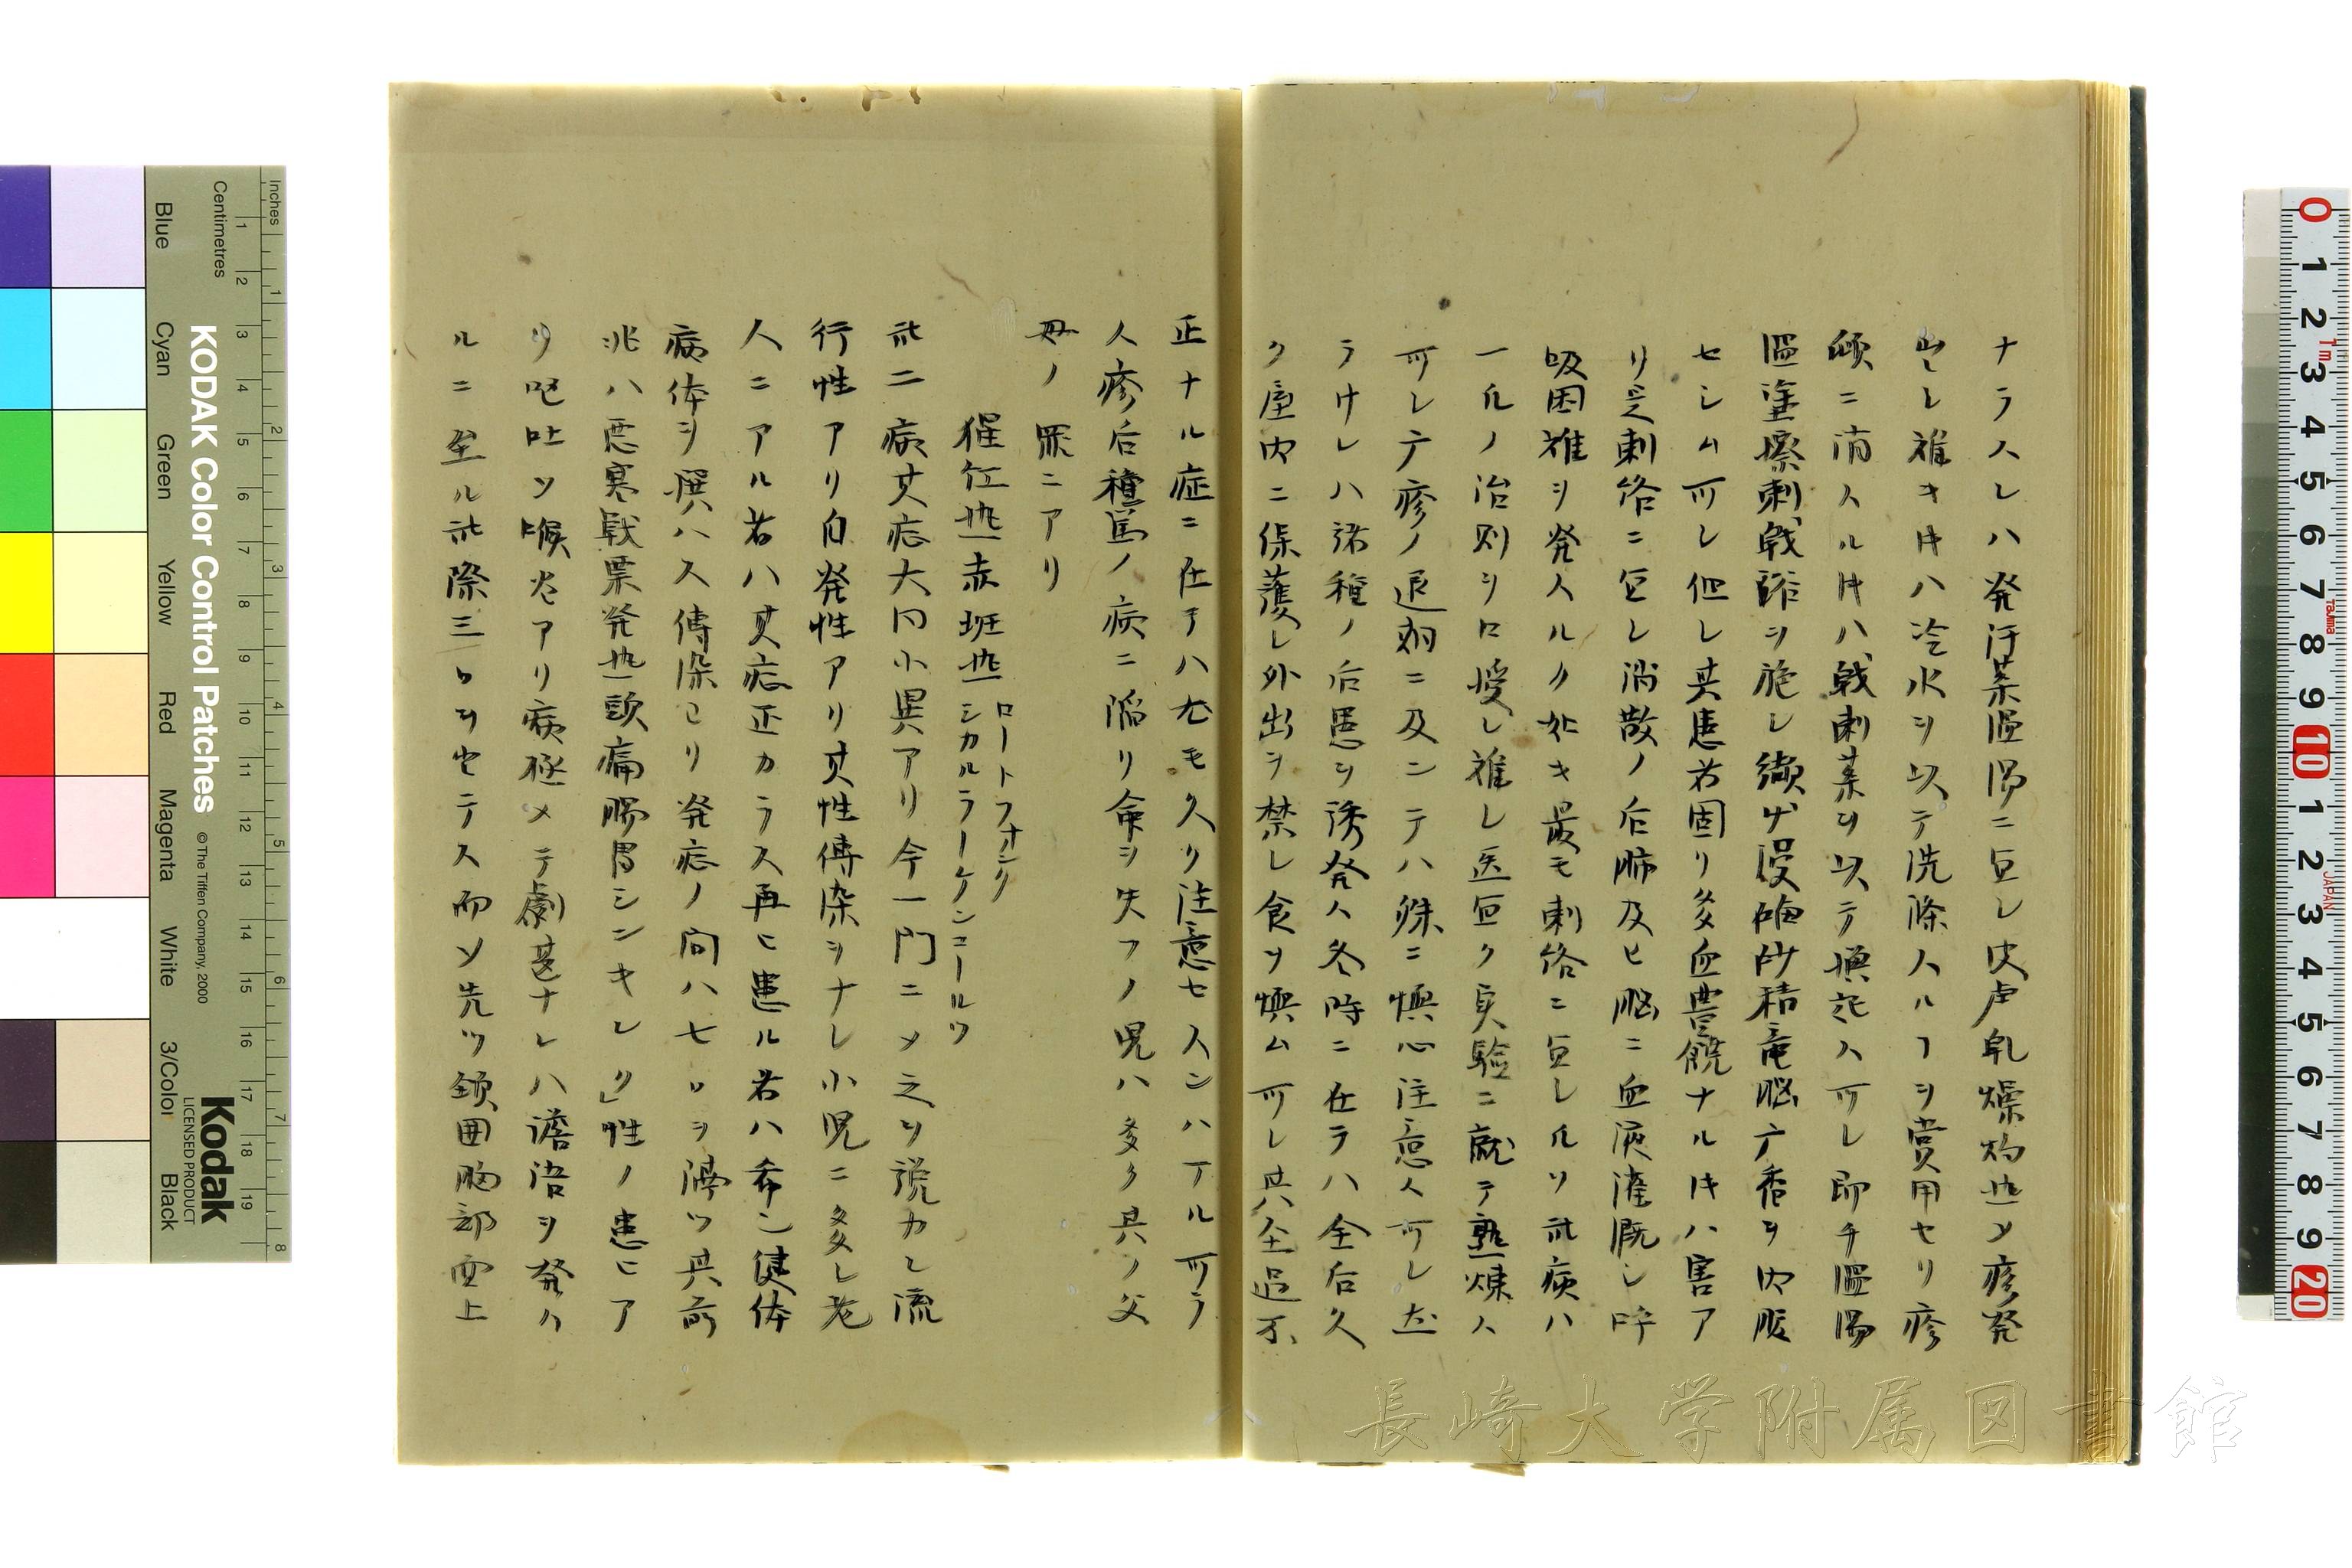 ナラスレハ発汗薬温湯ニ宜シ皮膚乾燥灼热シ疹発
シ難キ时ハ冷水ヲ以テ洗滌スルヿヲ賞用セリ疹
倾ニ消スル时ハ戟刺薬ヲ以テ喚起ス可シ即チ温湯
温蒸擦刺戟諸ヲ施シ磠砂精竜脳麝香ヲ内服
セシム可シ但シ其患者固リ多血豊饒ナル时ハ害ア
リ刺絡ニ宜シ消散ノ后肺及ヒ脳ニ血液灌溉シ呼
吸困难ヲ発スルカ如キ最モ刺絡ニ宜シルソ此病ハ
一ルノ治則ヲ口授シ难シ医宜ク実驗ニ就テ熟煉ス
可シテ疹ノ退期ニ及ンテハ殊ニ懊心注意ス可シ
ラサレハ諸種ノ后患ヲ誘発ス冬時ニ在ラハ全后久
ク屋内ニ保護シ外出ヲ禁シ食ヲ懊ム可シ其全過不
正ナル症ニ在テハ尤モ久ク注意セスンハアル可ラ
ス疹后種々ノ病ニ陥リ命ヲ失フノ児ハ多ク其ノ父
母ノ罪ニアリ
猩紅热赤斑热
ロートフオンク
シカルラーケンコールツ
此二病其症大同小異アリ今一門ニメ之ヲ説カレ流
行性アリ自発性アリ其性傳染ヲナシ小児ニ多シ老
人ニアル者ハ其症正カラス再ヒ患ル者ハ希シ健体
病体ヲ撰ハス傳染ヨリ発症ノ间ハ七日ヲ隔ツ其前
兆ハ悪寒戦栗発热頭痛腸胃シンキレリ」性ノ患ヒア
リ呕吐シ喉炎アリ病極メテ劇甚ナレハ譫語ヲ発ス
ルニ至ル此際三日ヲ出テス而ソ先ツ頸囲胸部面上